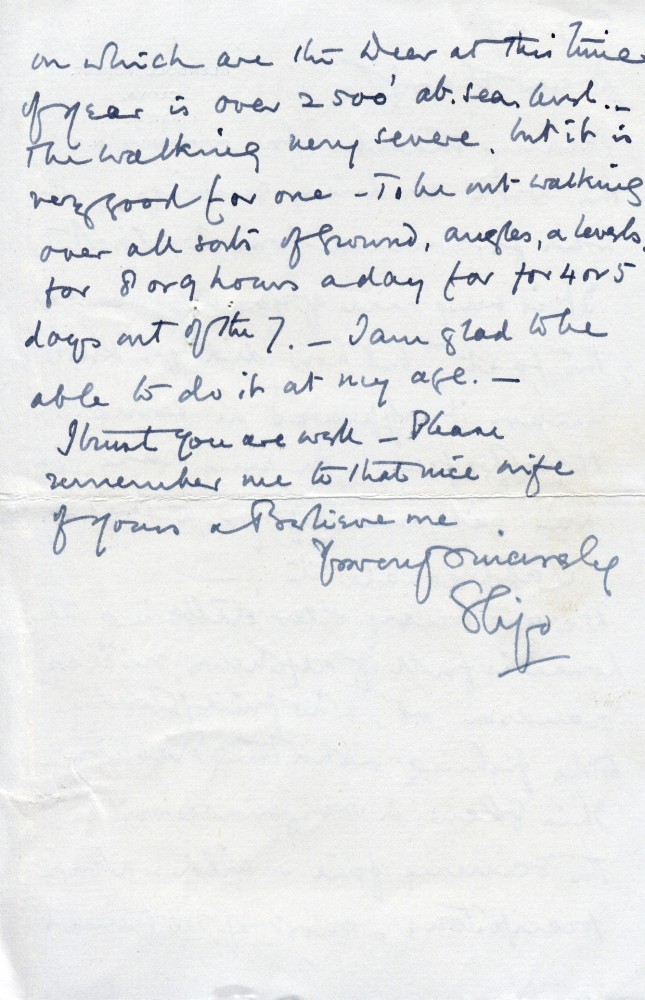 on which are the Deer at this time
of year is over 2500' ab. sea level. –
The walking very severe, but it is
very good for one – To be out walking
over all sorts of ground, angles, & levels,
for 8 or 9 hours a day for for 4 or 5
days out of the 7. – I am glad to be
able to do it at my age. –
I trust you are well – Please
remember me to that nice wife
of yours & Believe me
Yours very sincerely
Sligo